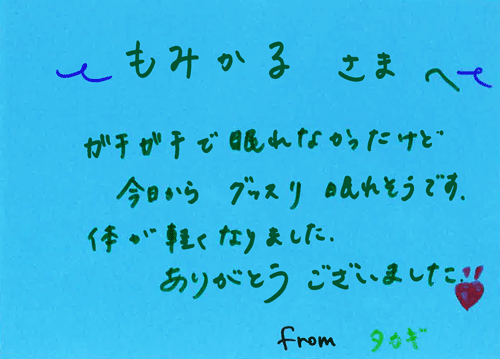 もみかる さま へ
ガチガチで眠れなかったけど
今日から グッスリ 眠れそうです.
体が軽くなりました.
ありがとう ございました!!
from タカギ